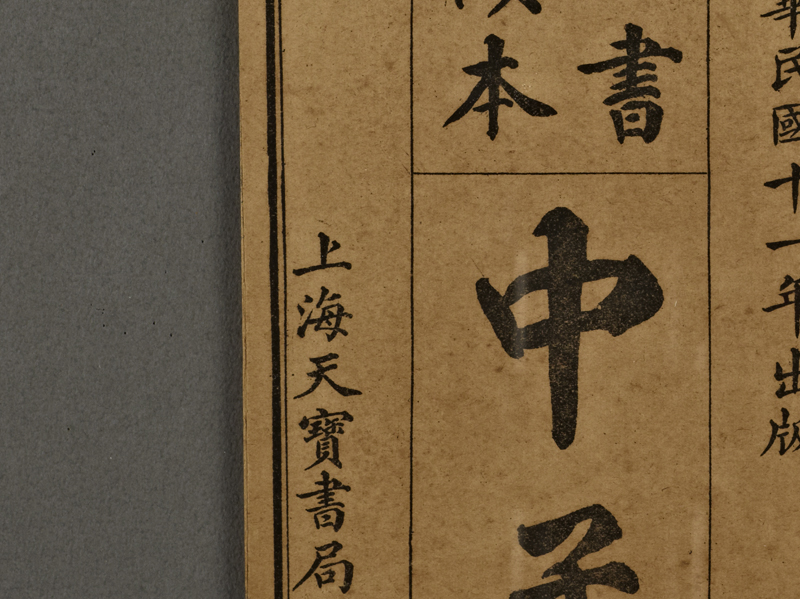 華民國十一年出版
書
本
中
上海天寶書局